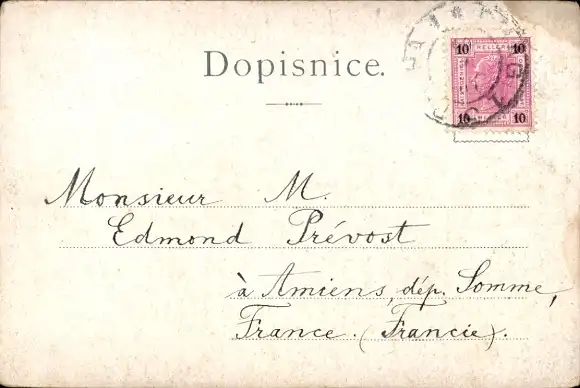 Dopisnice.
10 HELLER 10
10 10
Monsieur M.
Edmond Prévost
à Amiens, dép. Somme,
France. (Francie).